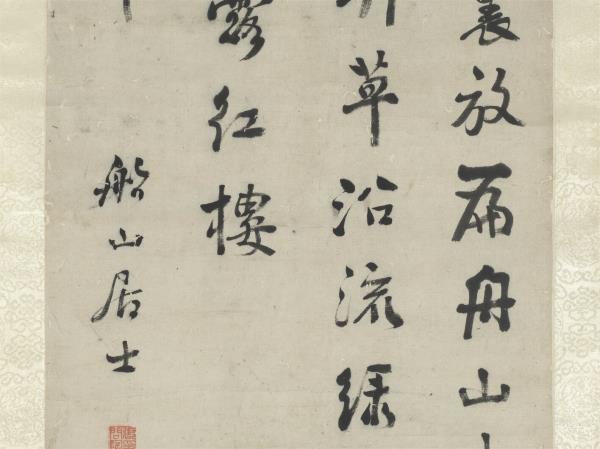 裏放扁舟山
草沿流緑
露紅樓
船山居士